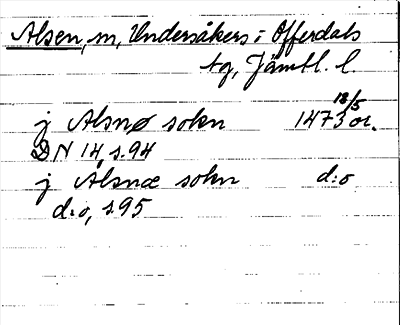 Alsen, m, Undersåkers o Offerdals
tg, Jämtl. l.
j Alsnø sokn 1473 18/5 or.
DN 14, s. 94
j Alsnæ sokn d:o
d:o, s 95